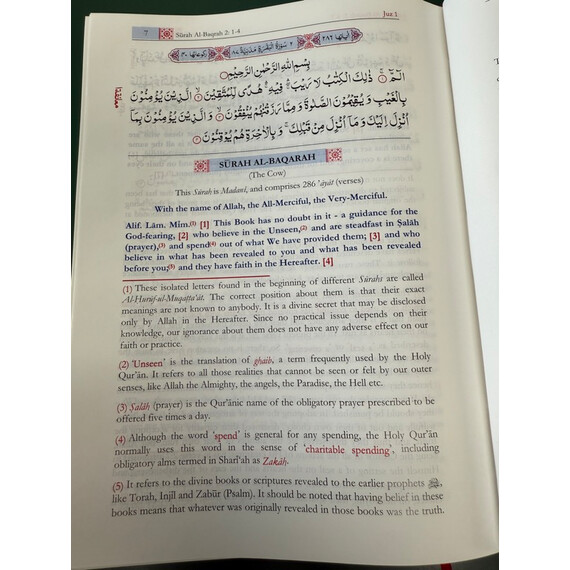 7 Sūrah Al-Baqrah 2: 1-4 Juz 1
اٰیاتھا ۲۸۶ ۲ سُوْرَةُ الْبَقَرَةِ مَدَنِيَّةٌ ۸۷ رکوعاتھا ۴۰
بِسْمِ اللهِ الرَّحْمٰنِ الرَّحِيْمِ
الٓمّٓ ۚ ذٰلِكَ الْكِتٰبُ لَا رَيْبَ ۛ فِيْهِ ۛ هُدًى لِّلْمُتَّقِيْنَ ۙ الَّذِيْنَ يُؤْمِنُوْنَ
بِالْغَيْبِ وَيُقِيْمُوْنَ الصَّلٰوةَ وَمِمَّا رَزَقْنٰهُمْ يُنْفِقُوْنَ ۙ وَالَّذِيْنَ يُؤْمِنُوْنَ بِمَآ
اُنْزِلَ اِلَيْكَ وَمَآ اُنْزِلَ مِنْ قَبْلِكَ ۚ وَبِالْاٰخِرَةِ هُمْ يُوْقِنُوْنَ
SŪRAH AL-BAQARAH
(The Cow)
This Sūrah is Madanī, and comprises 286 'āyāt (verses)
With the name of Allah, the All-Merciful, the Very-Merciful.
Alif. Lām. Mīm.(1) [1] This Book has no doubt in it - a guidance for the
God-fearing, [2] who believe in the Unseen,(2) and are steadfast in Ṣalāh
(prayer),(3) and spend(4) out of what We have provided them; [3] and who
believe in what has been revealed to you and what has been revealed
before you;(5) and they have faith in the Hereafter. [4]
(1) These isolated letters found in the beginning of different Sūrahs are called
Al-Hurūf-ul-Muqaṭṭa'āt. The correct position about them is that their exact
meanings are not known to anybody. It is a divine secret that may be disclosed
only by Allah in the Hereafter. Since no practical issue depends on their
knowledge, our ignorance about them does not have any adverse effect on our
faith or practice.
(2) 'Unseen' is the translation of ghaib, a term frequently used by the Holy
Qur'ān. It refers to all those realities that cannot be seen or felt by our outer
senses, like Allah the Almighty, the angels, the Paradise, the Hell etc.
(3) Ṣalāh (prayer) is the Qur'ānic name of the obligatory prayer prescribed to be
offered five times a day.
(4) Although the word 'spend' is general for any spending, the Holy Qur'ān
normally uses this word in the sense of 'charitable spending', including
obligatory alms termed in Sharī'ah as Zakāh.
(5) It refers to the divine books or scriptures revealed to the earlier prophets
like Torah, Injīl and Zabūr (Psalm). It should be noted that having belief in these
books means that whatever was originally revealed in those books was the truth.